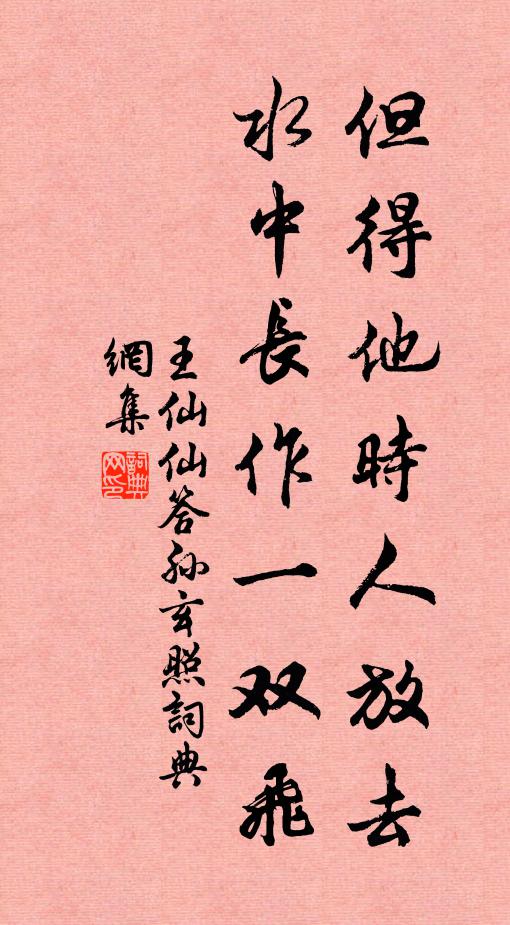 但得他時人放去
水中長作一双飛
王仙仙答孙玄照詞典
網集
詞典網印